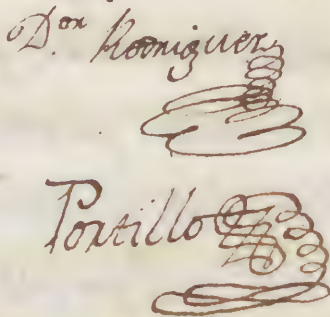 Don Rodriguez
Portillo